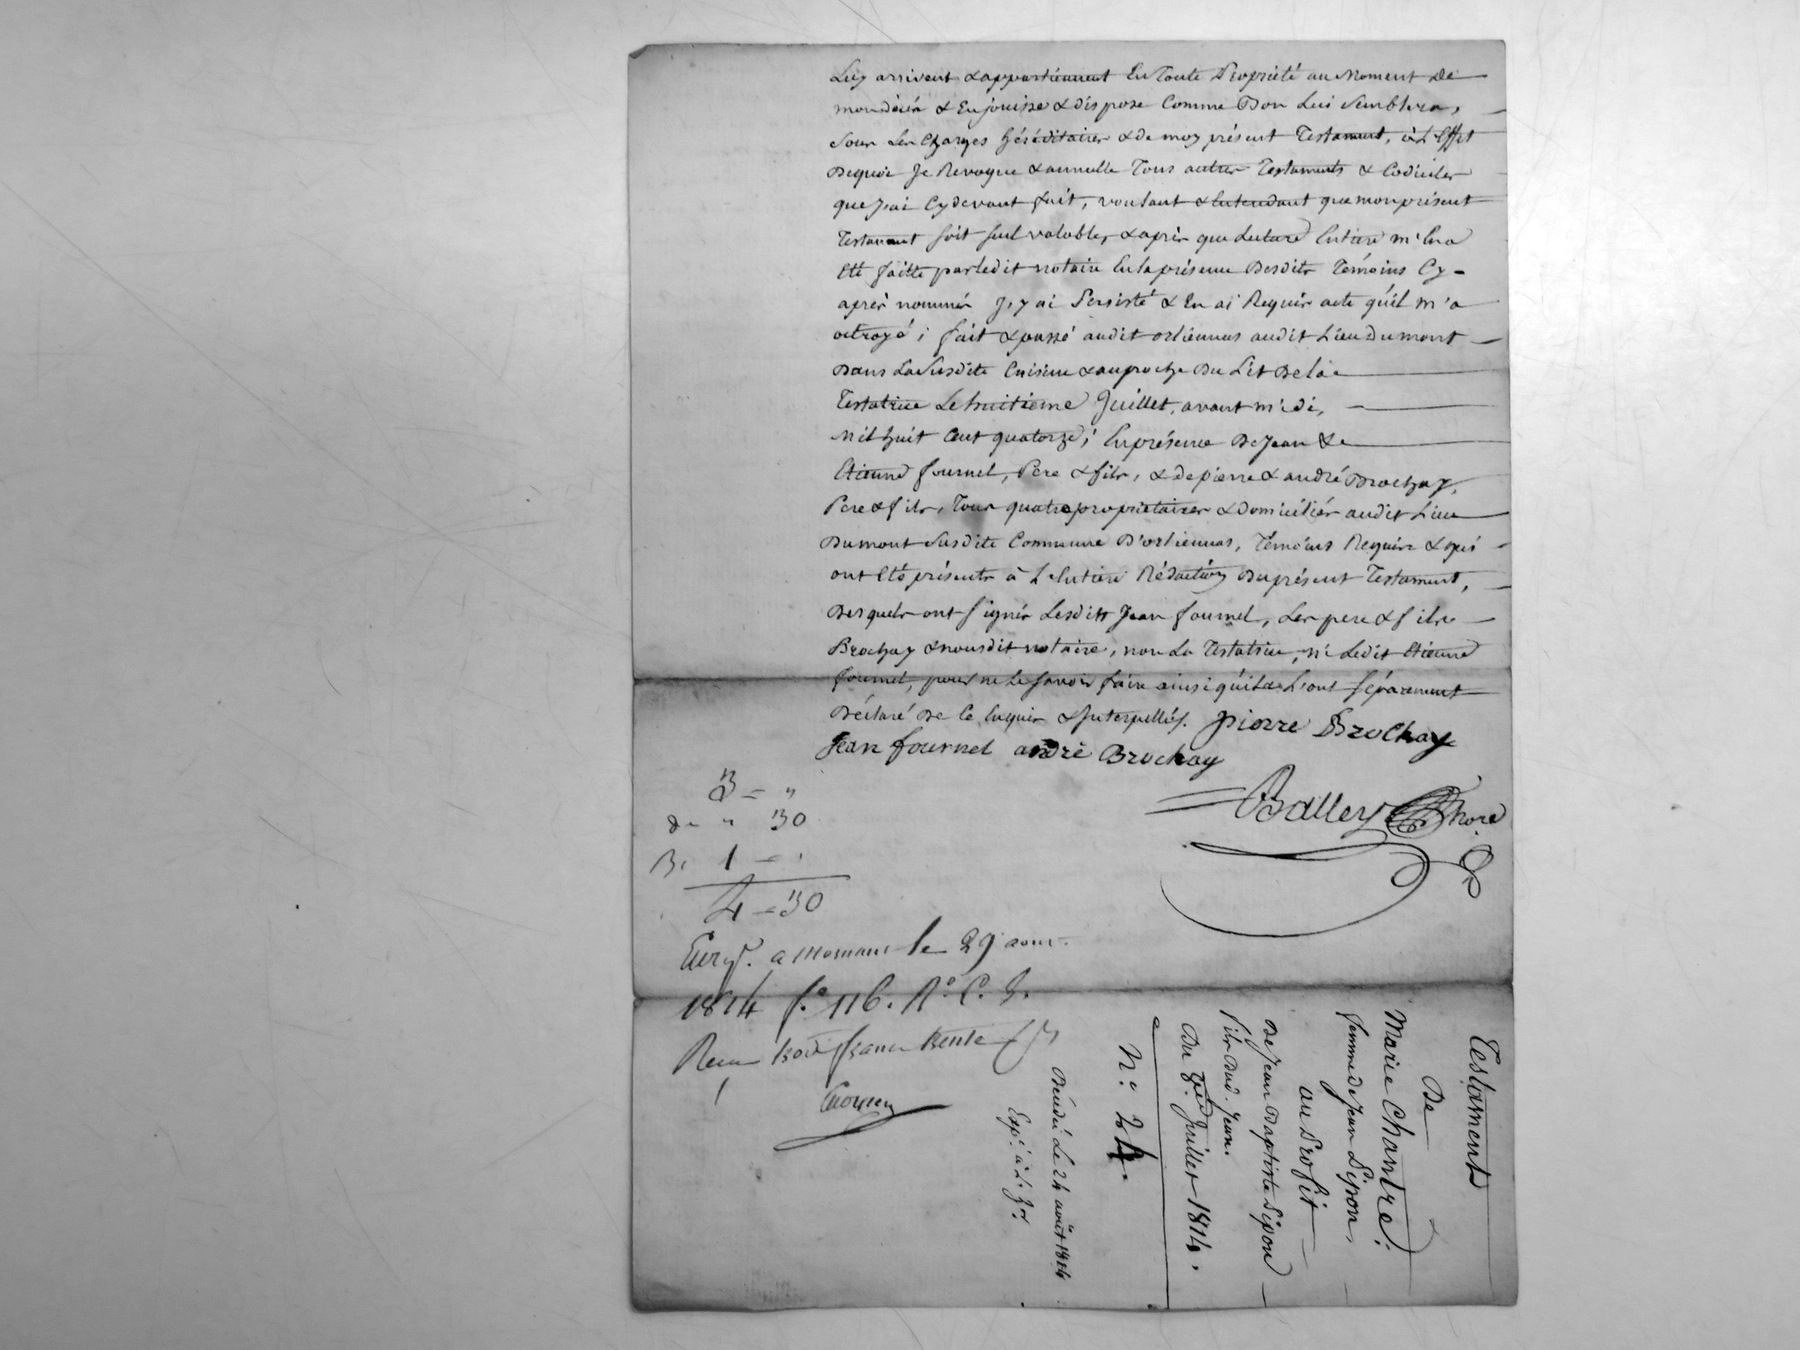 Luy arrivent & appartiennent En Toute Propriété au Moment de
mon décès & En jouisse & dispose Comme Bon Lui Semblera,
Sous Les Charges héréditaires & de moy présent Testament, à L'Effet
Dequoi Je Revoque & annulle Tous autres Testaments & Codiciles
que J'ai Cy devant fait, voulant & Entendant que mon présent
Testament soit seul valable, & après que Lecture Entiere m'En a
Eté faitte par ledit notaire En la présence Desdits Témoins Cy-
après nommés J'y ai Persisté & En ai Requis acte qu'il m'a
octroyé; fait & passé audit orliennas audit Lieu Du mont
Dans La Susdite Cuisine & auproche Du Lit De la
Testatrice Le huitieme Juillet, avant midi,
mil huit Cent quatorze; En présence De Jean &
Etienne fournel, Pere & fils, & de pierre & andré Brochay,
Pere & fils, Tous quatre propriétaires & Domiciliés audit Lieu
Du mont Susdite Commune D'orliennas, Témoins Requis & qui
ont Eté présents à L'Entiere Rédaction Du présent Testament,
Desquels ont signés Lesdits Jean fournel, Les pere & fils
Brochay & nousdit notaire, non La Testatrice, ni Ledit Etienne
fournel, pour ne Le Savoir faire ainsi qu'ils L'ont séparément
Déclaré De Ce Enquis & Interpellés. pierre Brochay
Jean fournel andré Brochay
Balley
3 = "
" 30
1 -
4 = 30
Enregt. a Mornant le 29 aout
1814 f.o 116. R.o C.
Recu trois francs trente
Testament
De
Marie Chantre
femme de Jean Sipon,
au Profit
De Jean Baptiste Sipon
fils Dud. Jean.
Du Juillet 1814.
N.o 24.
Décédée Le 24 août 1814
Exp.